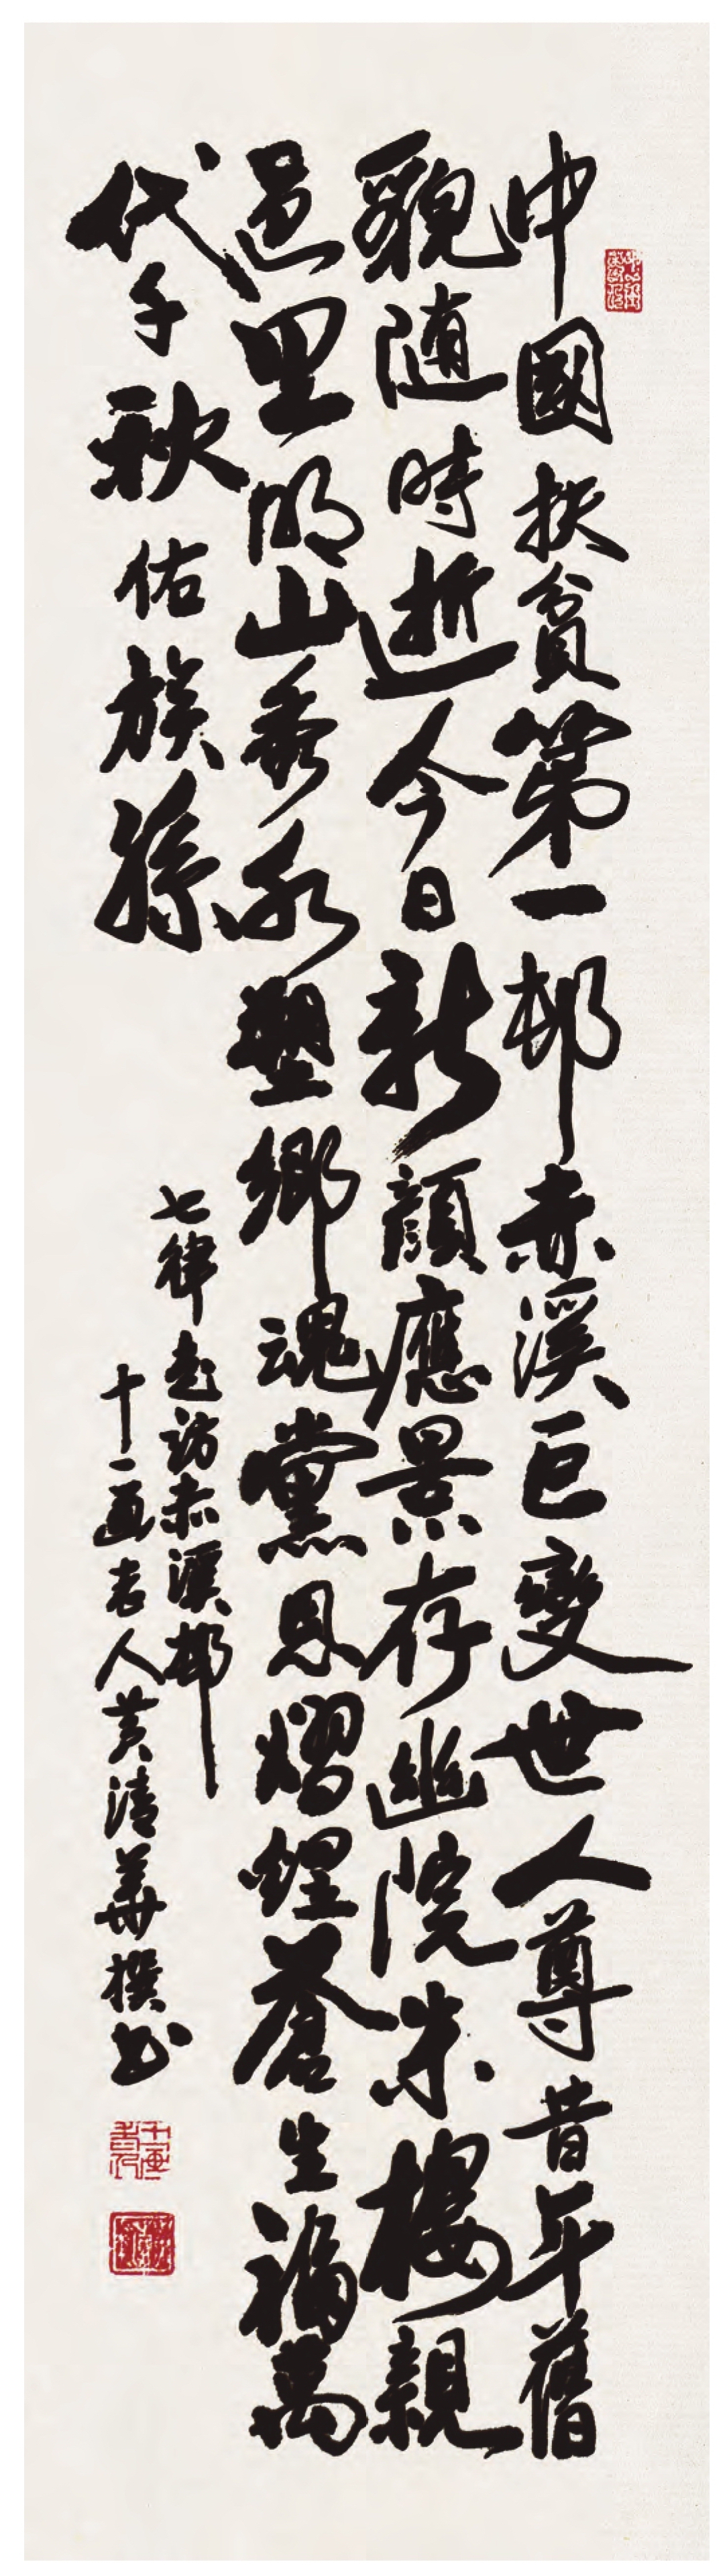 中國扶貧第一邨赤溪巨變世人尊昔年舊
貌随時逝今日新顔應景存幽院朱樓親
邑里明山秀水塑鄉魂黨恩熠煋蒼生福萬
代千秋佑族孫
七律走訪赤溪邨
十一畫老人黄清華撰书